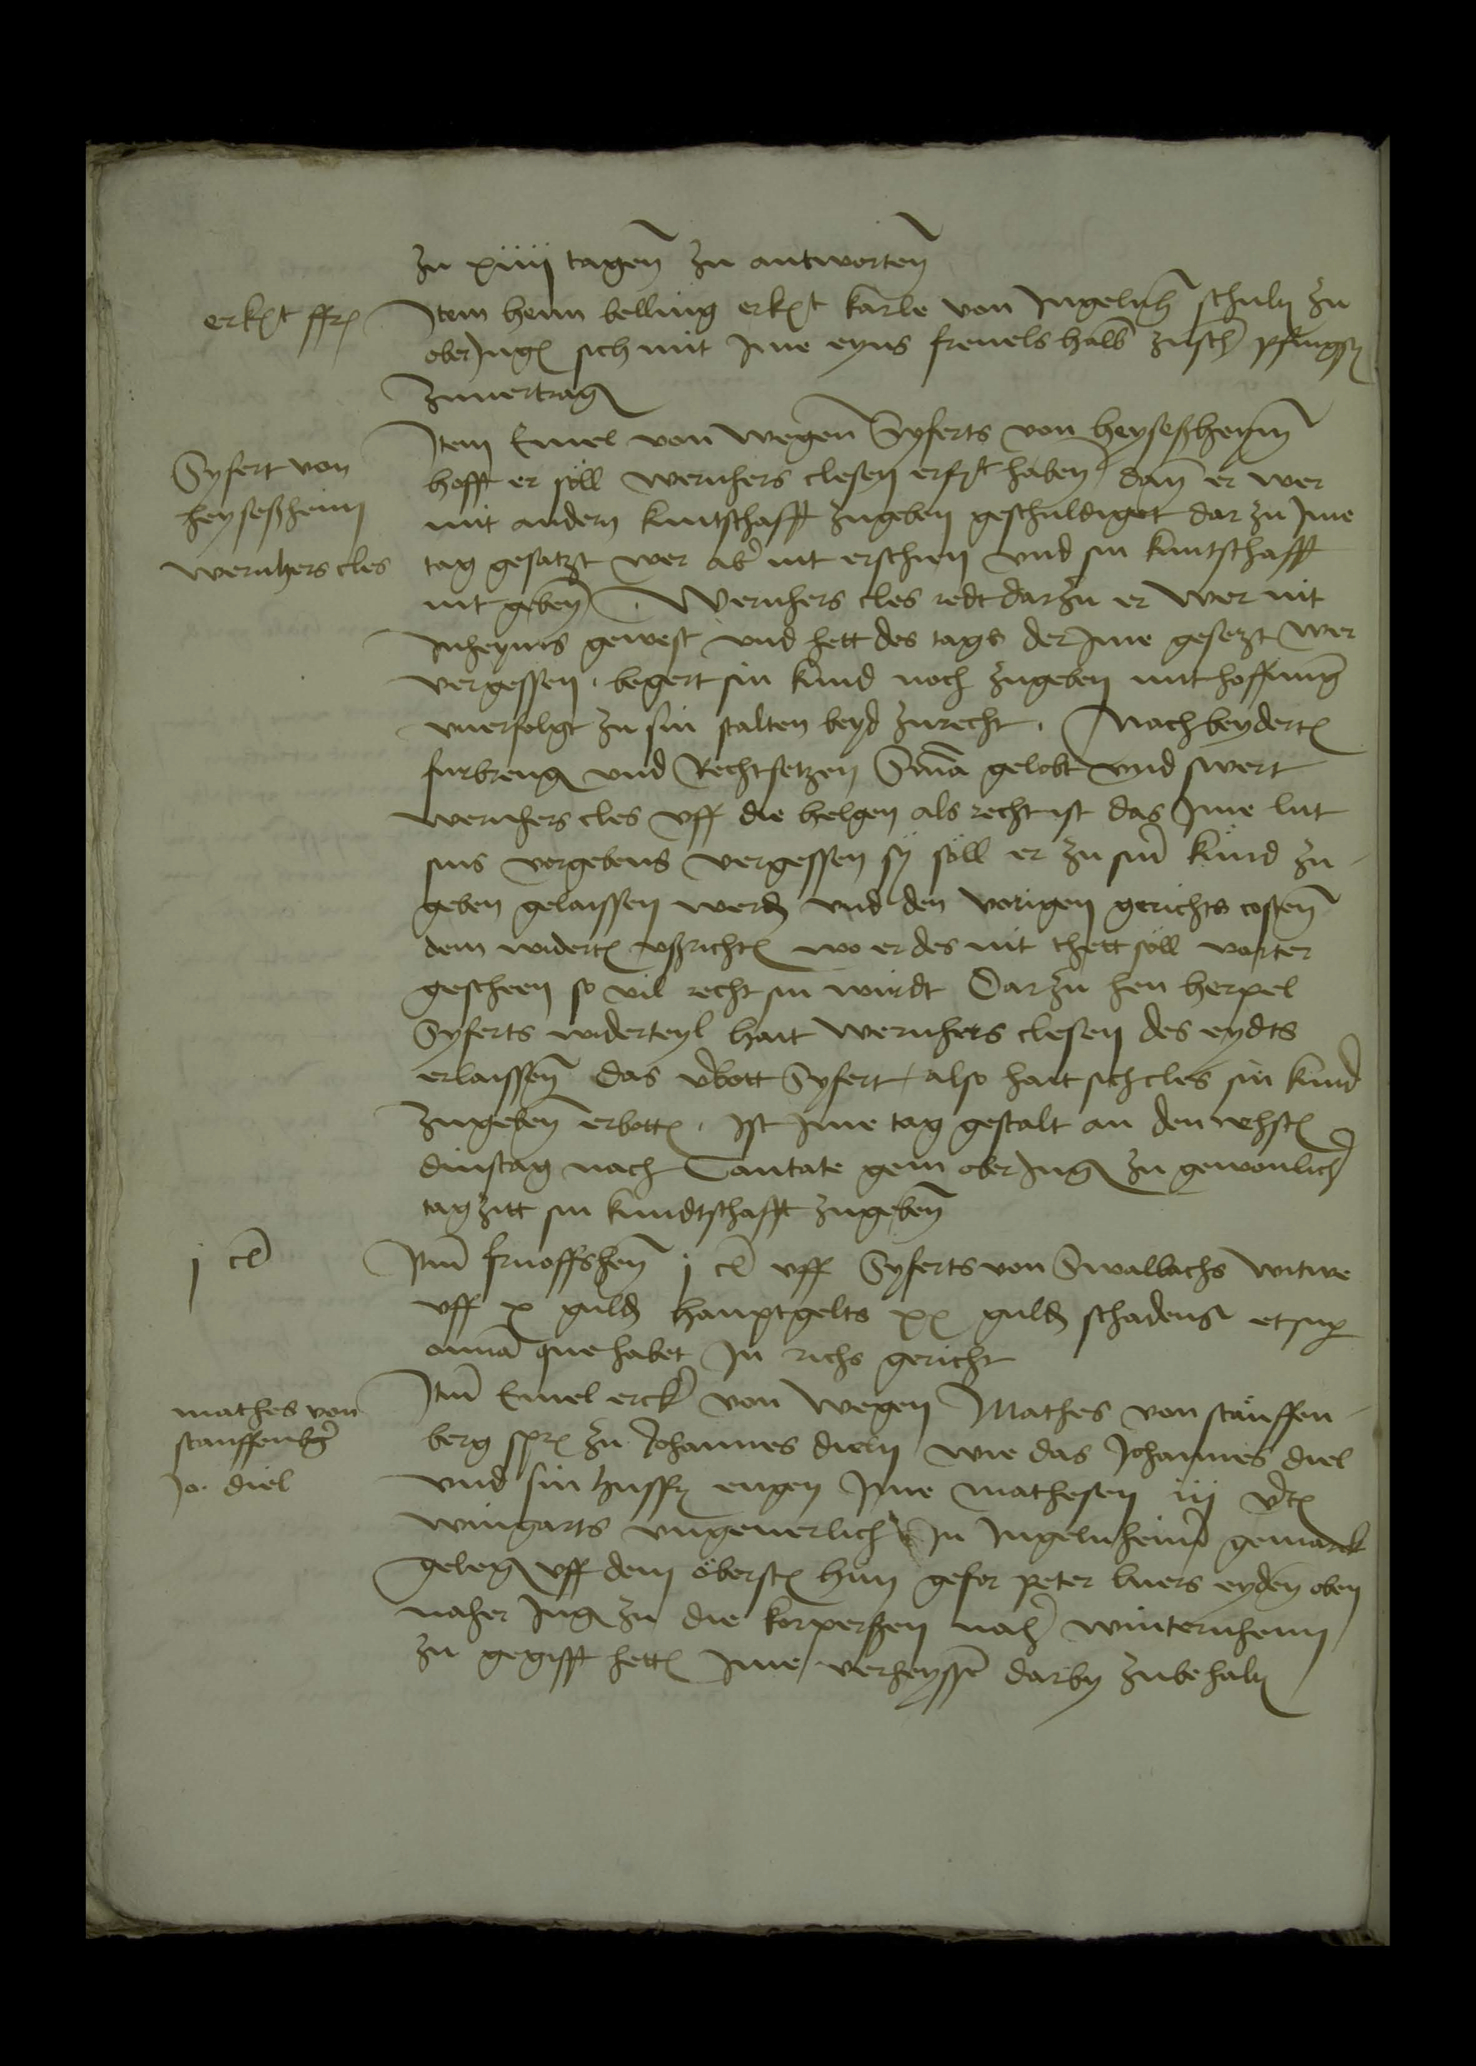 zu xiiii tagen zu antworten
erkent ffr
Item henn belling erkent karle von Ingelnh schuln zu
ober Ing sich mit Ime eyns freuels halb zusch pfingst
zuuertrag
Syfert von
heyseßheim
wernhers cles
Item Emel von wegen Syferts von heyseßheym
hofft er söll wernhers clesen erfolgt haben dan er wer
mit andern kuntschafft zugeben geschuldiget dar zu Ime
tag gesatzt wer ab nit erschien vnd sin kuntschafft
nit geben . Wernhers cles redt darzu er wer nit
Inheyms gewest vnd hett des tags der Ime gesetzt wer
vergessen . begert sin kund noch zugeben mit hoffnung
vnerfolgt zu sin stalten beyd zurecht . Nach beydert
furbreng vnd Rechtsetzen Sma gelobt vnd swert
wernhers cles vff die helgen als recht ist das Ime lut
sins vorgebens vergessen sy söll er zu sin kund zu
geben gelaissen werd vnd den vorigen gerichts costen
dem widert vßricht wo er des nit thett söll vorter
gescheen so vil recht sin wirdt Darzu hen herpel
Syferts widerteyl hait wernhers clesen des eydts
erlaissen das vbott Syfert / also hait sich cles sin kund
zugeben erbott . ist Ime tag gestalt an den nehst
dinstag nach Cantate gein ober Ing zu gewonlich
tagzitt sin kundtschafft zugeben
j cl
Itm fruoffshen j cl vff Syferts von Swalbachs witwe
vff x guld hauptgelts xx guld schadens et sup
omnia que habet In richs gericht
mathes von
stauffenbg
Jo. diel
Itm Emel erck von wegen Mathes von stauffen
berg spr zu Johannes dieln wie das Johannes diel
vnd sin husffr engen Ime mathesen iii vrt
wingarts vngeuerlich In Ingelnheim gemarck
geleg vff dem öberst hun gefor peter buers eyden oben
naher Ing zu die korperßen nah winternheim
zu gegifft hett Ime verheyssen darby zubehaln